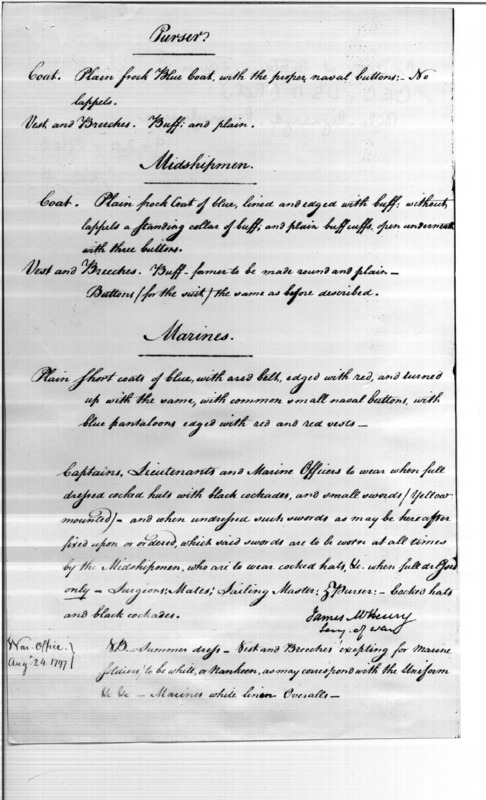 Purser
Coat. Plain frock Blue Coat, with the proper naval buttons:- No
lappels.
Vest and Breeches. Buff: and plain.
Midshipmen.
Coat. Plain frock Coat of blue, lined and edged with buff: without
lappels a standing collar of buff; and plain buff cuffs, open underneath
with three buttons.
Vest and Breeches. Buff- former to be made round and plain-
Buttons (for the suit) the same as before described.
Marines.
Plain short coats of blue, with a red belt, edged with red, and turned
up with the same, with common small naval buttons, with
blue pantaloons edged with red and red vests-
Captains, Lieutenants and Marine Officers to wear when full
dressed cocked hats with black cockades, and small swords (Yellow
mounted)- and when undressed such swords as may be hereafter
fixed upon or ordered, which said swords are to be worn at all times
by the Midshipmen, who are to wear cocked hats, &c. when full dressed
only- Surgeons; Mates; Sailing Master; & Purser:- Cocked hats
and black cockades.
James McHenry
Secy. of War
War Office.
Augt. 24. 1797
NB- Summer dress- Vest and Breeches excepting for Marine
Soldiers to be white, or Nankeen, as may correspond with the Uniform
&c &c- Marines white linen Overalls-